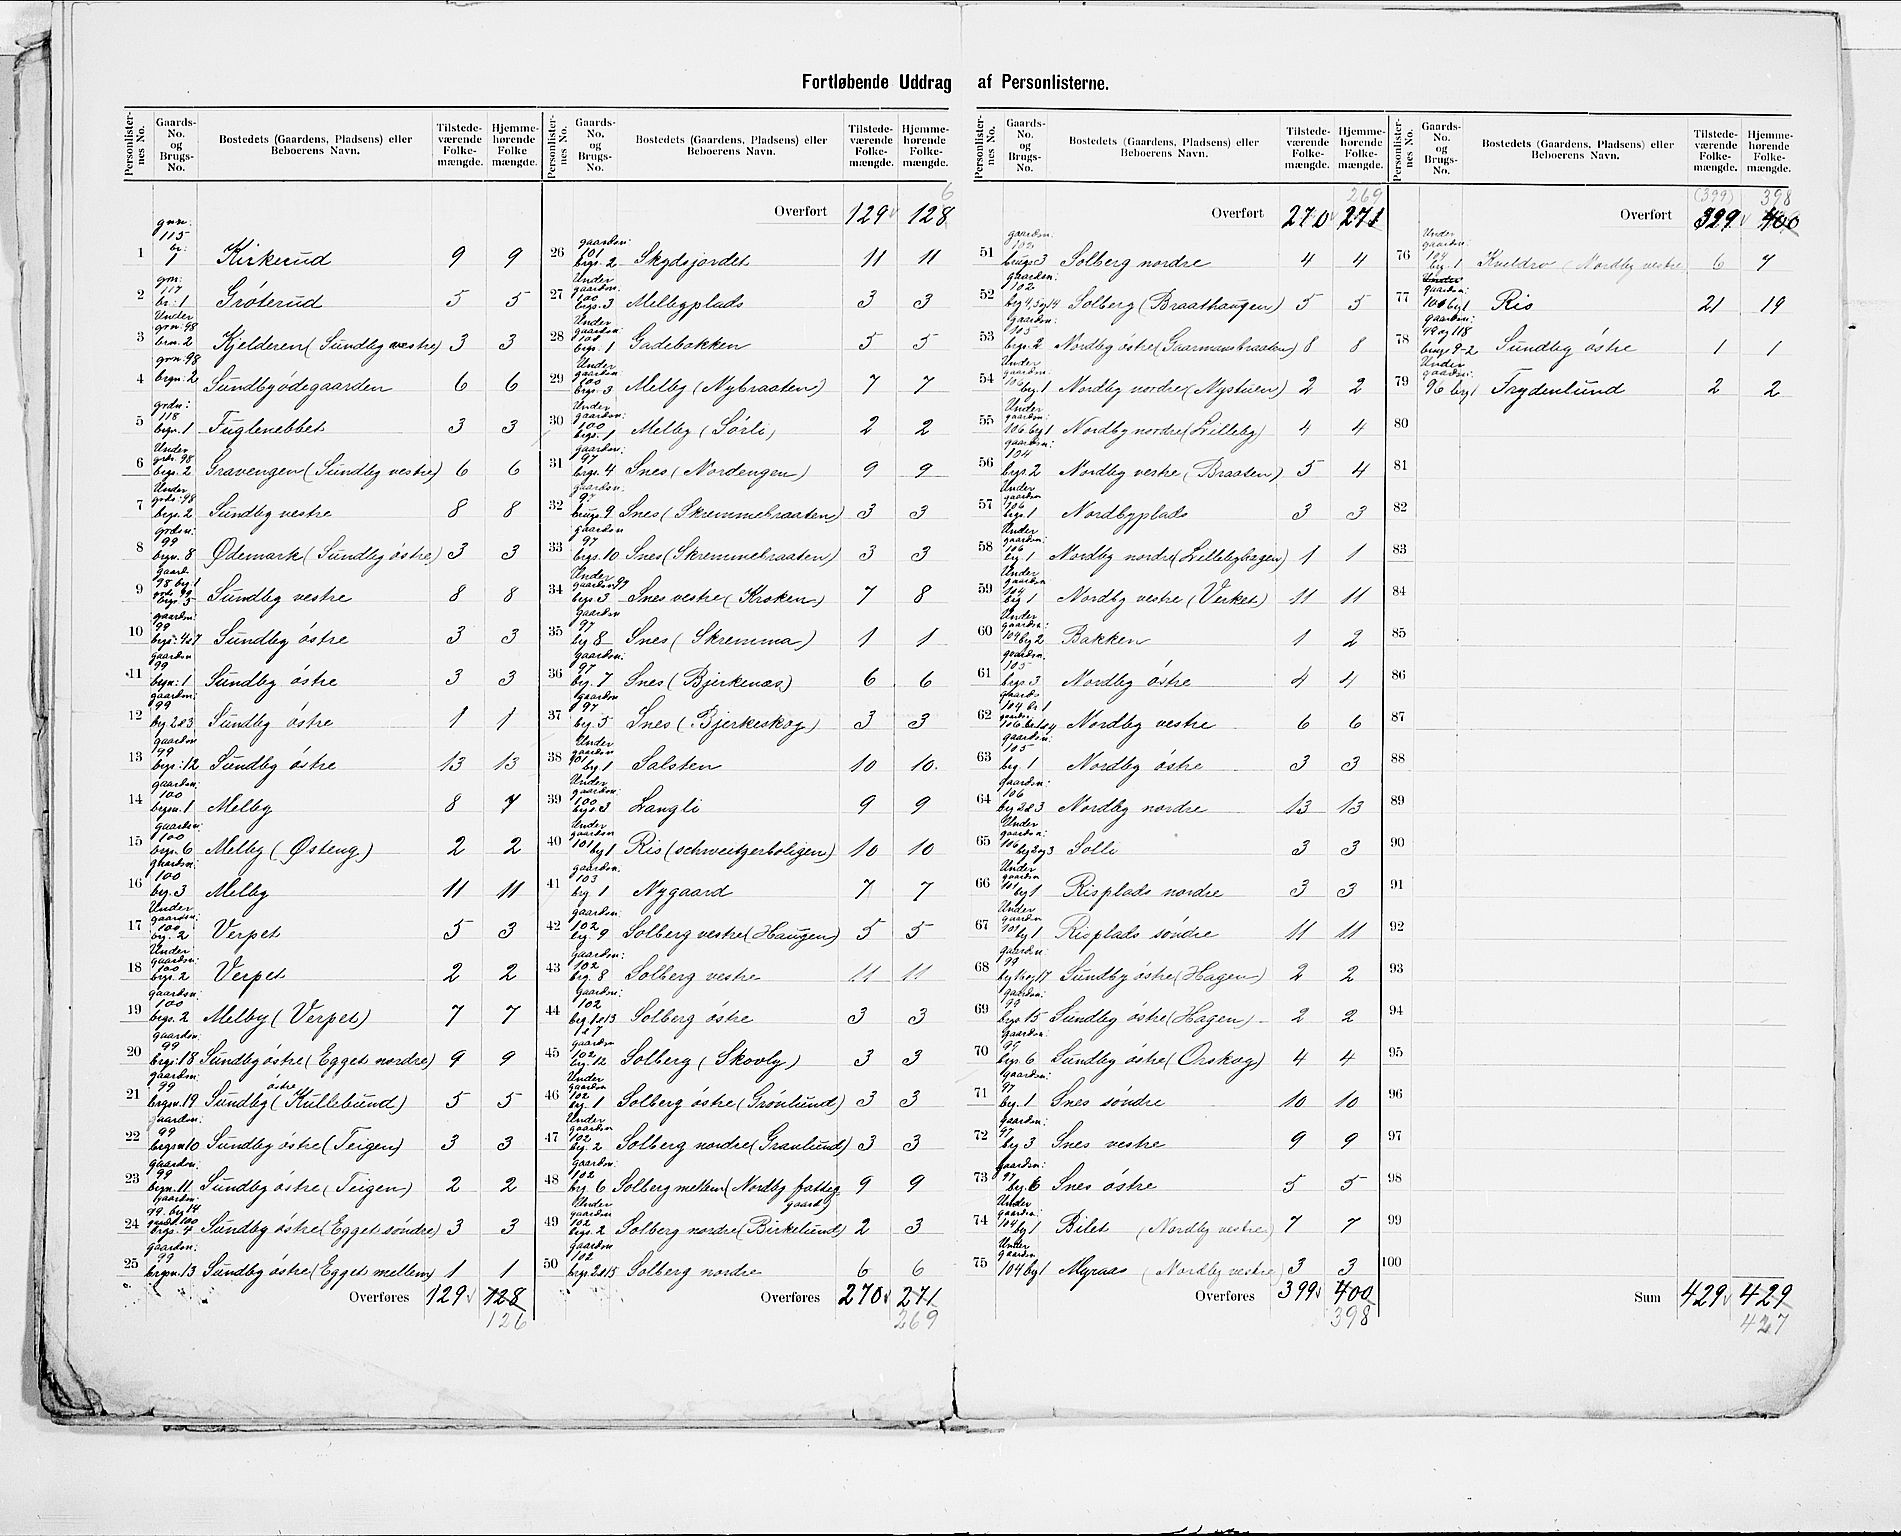 Fortløbende Uddrag af Personlisterne.
Personlister-nes No. | Gaards-No. og Brugs-No. | Bostedets (Gaardens, Pladsens) eller Beboerens Navn. | Tilstede-værende Folke-mængde. | Hjemme-hørende Folke mængde.
1 gnr. 115 br: 1 Kirkerud 9 9
2 grn: 117 br: 1 Gróterud 5 5
3 Under grn: 98 brn. 2 Kjelderen (Sundby vestre) 3 3
4 grn. 98 brgn: 2 Sundbyódegaarden 6 6
5 grdn: 118 brgn. 1 Fuglenebbet 3 3
6 Under grdn. 98 brgs. 2 Gravengen (Sundby vestre) 6 6
7 Under grds: 98 brgs. 2 Sundby vestre 8 8
8 grdn: 99 brgn. 8 Ødemark (Sundby óstre) 3 3
9 gaard 98 brg. 1 grds 99 brgs. 5 Sundby vestre 8 8
10 gaardsn: 99 brgs: 4&7 Sundby óstre 3 3
11 gaardsn 99 brgn: 1 Sundby óstre 3 3
12 gaardsn: 99 brg 2&3 Sundby óstre 1 1
13 gaardsn 99 brgs: 12 Sundby óstre 13 13
14 gaardsn: 100 brgsn. 1 Melby 8 7
15 gaardsn: 100 brgs. 6 Melby (Østeng) 2 2
16 gaardsn: 100 brg. 3 Melby 11 11
17 Under gaardsn: 100 brg. 2 Verpet 5 3
18 Under gaardsn: 100 brgs. 2 Verpet 2 2
19 gaardsn: 100 brgs. 2 Melby (Verpet) 7 7
20 gaardsn: 99 brgs: 18 Sundby óstre (Egget nordre) 9 9
21 gaardsn: 99 brgsn. 19 Sundby óstre (Kullebund) 5 5
22 gaardsn: 99 brgsn 10 Sundby óstre (Teigen) 3 3
23 gaardsn: 99 brgn. 11 Sundby óstre (Teigen) 2 2
24 gaardsn: 99. brg 14 gaards. 100 brgs. 4 Sundby óstre (Egget sóndre) 3 3
25 gaardsn: 99 brgsn. 13 Sundby óstre (Egget mellem) 1 1
Overføres 129 128
126
Personlister-nes No. | Gaards-No. og Brugs-No. | Bostedets (Gaardens, Pladsens) eller Beboerens Navn. | Tilstede-værende Folke-mængde. | Hjemme-hørende Folke-mængde.
6
Overført 129 128
26 gaardsn: 101 brgs. 2 Skydsjordet 11 11
27 Under gaardsn: 100 brgs. 3 Melbyplads 3 3
28 Under gaardsn: 100 brgs. 1 Gadebakken 5 5
29 Under gaardsn: 100 brgs. 3 Melby (Nybraaten) 7 7
30 Under gaardsn: 100 brgs. 1 Melby (Sórli) 2 2
31 gaardsn: 97 brgs. 4 Snes (Nordengen) 9 9
32 gaardsn. 97 brugs. 9 Snes (Skremmebraaten) 3 3
33 gaardsn 97 brgs. 10 Snes (Skremmebraaten) 3 3
34 Under gaardsn 97 brgs. 3 Snes vestre (Kroken) 7 8
35 gaardsn 97 brg 8 Snes (Skremma) 1 1
36 gaardsn: 97 brg. 7 Snes (Bjerkenæs) 6 6
37 gaardsn 97 brg. 5 Snes (Bjerkeskog) 3 3
38 Under gaardsn 101 brg 1 Salsten 10 10.
39 Under gaardsn: 100 brgs. 3 Langli 9 9
40 Under gaardsn 101 brg 1 Ris (schweitzerboligen) 10 10
41 gaardsn. 103 brg 1 Nygaard 7 7
42 gaardsn: 102 brg. 9 Solberg vestre (Haugen) 5 5
43 gaardsn: 102 brg. 8 Solberg vestre 11 11
44 gaardsn: 102 brg 1&13 Solberg óstre 3 3
45 gaardsn 102 brg 12 Solberg (Skovly) 3 3
46 Under gaardsn 102 brg. 1 Solberg óstre (Grónlund) 3 3
47 Under gaardsn 102 brg. 2 Solberg nordre (Granlund) 3 3
48 gaardsn: 102 brg 6 Solberg mellem (Nordby fatteggaard) 9 9
49 Under gaardsn 102 brgs. 2 Solberg nordre (Birkelund) 2 3
50 gaardsn 102 brgs 2&15 Solberg nordre 6 6
Overføres 270 271
269
Personlister-nes No. | Gaards-No. og Brugs-No. | Bostedets (Gaardens, Pladsens) eller Beboerens Navn. | Tilstede-værende Folke-mængde. | Hjemme-hørende Folke-mængde.
269
Overført 270 271
51 gaardsn: 102 brugs 3 Solberg nordre 4 4
52 gaardsn: 102 brg 4,5 og 14 Solberg (Braathaugen) 5 5
53 gaardsn: 105 brgs. 2 Nordby óstre (Gaarmansbraaten) 8 8
54 Under gaardsn: 106 brg. 1 Nordby nordre (Nystuen) 2 2
55 Under gaardsn: 106 brg 1 Nordby nordre (Lilleby) 4 4
56 gaardsn: 104 brgs 2 Nordby vestre (Braaten) 5 4
57 Under gaardsn 106 brgs. 1 Nordbyplads 3 3
58 Under gaardsn: 106 brg. 1 Nordby nordre (Lillebyhagen) 1 1
59 Under gaardsn: 104 brg. 1 Nordby vestre (Verket) 11 11
60 Under gaardsn: 104 brg 2 Bakken 1 2
61 gaardsn. 105 brgs 3 Nordby óstre 4 4
62 gaards 104 br 1 gaards 106 br 1og4 Nordby vestre 6 6
63 gaardsn: 105 brg. 1 Nordby óstre 3 3
64 gaardsn: 106 brg 2&3 Nordby nordre 13 13
65 Under gaardsn: 106 brg 2og3 Solli 3 3
66 Under gaardsn 101 brg 1 Risplads nordre 3 3
67 Under gaardsn 101 brg 1 Risplads sóndre 11 11
68 gaardsn: 99 Sundby óstre (Hagen) 2 2
69 gaardsn: 99 brgs. 15 Sundby óstre (Hagen) 2 2
70 gaardsn: 99 brgs. 6 Sundby óstre (Orskog) 4 4
71 gaardsn: 97 brg. 1 Snes sóndre 10 10
72 gaardsn: 97 brg 3 Snes vestre 9 9
73 gaardsn: 97 brg. 6 Snes óstre 5 5
74 Under gaardsn: 104 brg 1 Bilet (Nordby vestre) 7 7
75 Under gaardsn 104 brg 1 Myraas (Nordby vestre) 3 3
Overføres 399 400
398
Personlister-nes No. | Gaards-No. og Brugs-No. | Bostedets (Gaardens, Pladsens) eller Beboerens Navn. | Tilstede-værende Folke-mængde. | Hjemme-hørende Folke-mængde.
(399) 398
Overført 399 400
76 Under gaardsn: 104 brg. 1 Kveldro (Nordby vestre) 6 7
77 Under gaardsn: 101 brg 1 Ris 21 19
78 gaardsn: 99 og 118 brugs 9-2 Sundby óstre 1 1
79 Under gaardsn: 96 brg 1 Frydenlund 2 2
80
81
82
83
84
85
86
87
88
89
90
91
92
93
94
95
96
97
98
99
100
Sum 429 429
427